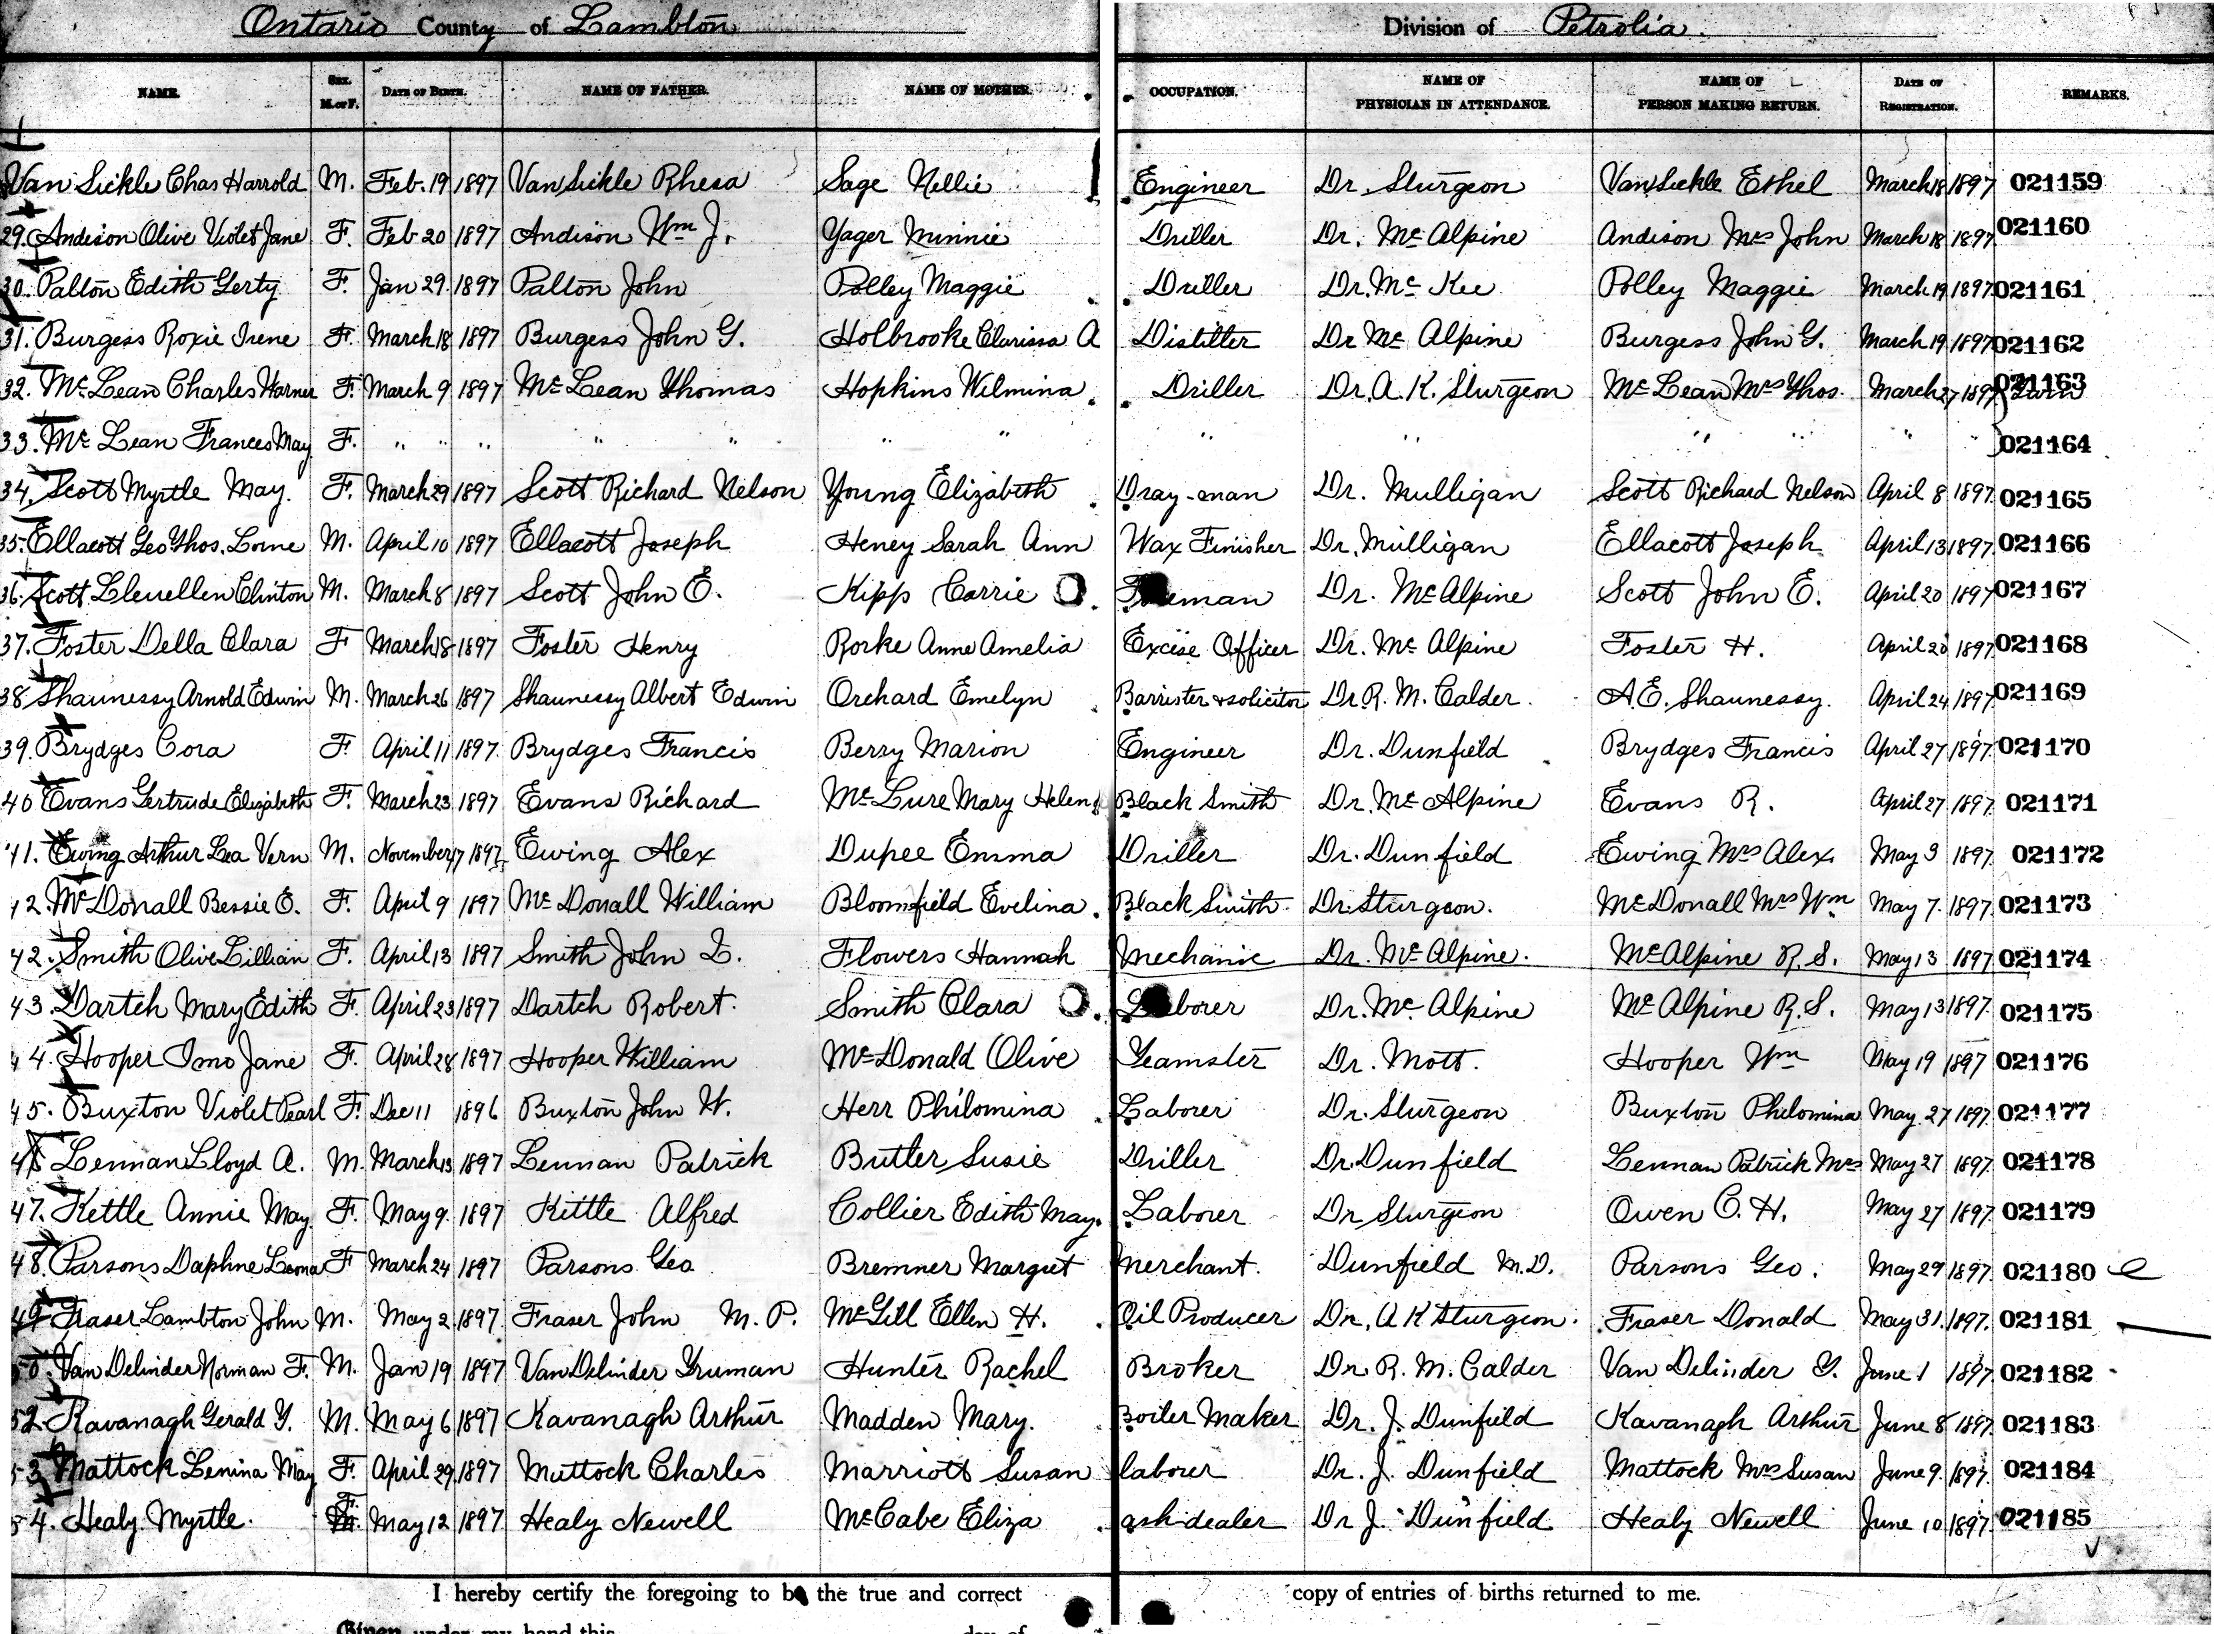 Ontario County of Lambton Division of Petrolia.
NAME. SEX. M. or F. DATE OF BIRTH. NAME OF FATHER. NAME OF MOTHER. OCCUPATION. NAME OF PHYSICIAN IN ATTENDANCE. NAME OF PERSON MAKING RETURN. DATE OF REGISTRATION. REMARKS.
Van Sickle Chas Harrold M. Feb. 19 1897 Van Sickle Rhesa Sage Nellie Engineer Dr. Sturgeon Van Sickle Ethel March 18 1897 021159
29. Andison Olive Violet Jane F. Feb 20 1897 Andison Wm J. Yager Minnie Driller Dr. McAlpine Andison Mrs John March 18 1897 021160
30. Palton Edith Gerty F. Jan 29 1897 Palton John Polley Maggie Driller Dr. McKee Polley Maggie March 19 1897 021161
31. Burgess Roxie Irene F. March 18 1897 Burgess John G. Holbrooke Clarissa A Distiller Dr McAlpine Burgess John G. March 19 1897 021162
32. McLean Charles Warner F. March 9 1897 McLean Thomas Hopkins Wilmina Driller Dr. A. K. Sturgeon McLean Mrs Thos. March 27 1897 021163 Twin
33. McLean Frances May F. " " " " " " " " " " " " " " 021164
34. Scott Myrtle May. F. March 29 1897 Scott Richard Nelson Young Elizabeth Dray-man Dr. Mulligan Scott Richard Nelson April 8 1897 021165
35. Ellacott Geo Thos. Lorne M. April 10 1897 Ellacott Joseph Heney Sarah Ann Wax Finisher Dr. Mulligan Ellacott Joseph April 13 1897 021166
36. Scott Llewellen Clinton M. March 8 1897 Scott John E. Kipp Carrie man Dr. McAlpine Scott John E. April 20 1897 021167
37. Foster Della Clara F March 18 1897 Foster Henry Rorke Anne Amelia Excise Officer Dr. McAlpine Foster H. April 20 1897 021168
38 Shaunessy Arnold Edwin M. March 26 1897 Shaunessy Albert Edwin Orchard Emelyn Barrister & solicitor Dr R. M. Calder. A. E. Shaunessy. April 24 1897 021169
39. Brydges Cora F. April 11 1897 Brydges Francis Berry Marion Engineer Dr. Dunfield Brydges Francis April 27 1897 021170
40 Evans Gertrude Elizabeth F. March 23 1897 Evans Richard McLure Mary Helen Black Smith Dr. McAlpine Evans R. April 27 1897 021171
41. Ewing Arthur Lea Vern M. November 17 1897 Ewing Alex Dupee Emma Driller Dr. Dunfield Ewing Mrs Alex. May 3 1897 021172
42. McDonall Bessie E. F. April 9 1897 McDonall William Bloomfield Evelina. Black Smith Dr. Sturgeon. McDonall Mrs Wm May 7. 1897 021173
42. Smith Olive Lillian F. April 13 1897 Smith John L. Flowers Hannah Mechanic Dr. McAlpine. McAlpine R. S. May 13 1897 021174
43. Dartch Mary Edith F. April 23 1897 Dartch Robert. Smith Clara Laborer Dr. McAlpine McAlpine R. S. May 13 1897 021175
44. Hooper Imo Jane F. April 28 1897 Hooper William McDonald Olive Teamster Dr. Mott. Hooper Wm May 19 1897 021176
45. Buxton Violet Pearl F. Dec 11 1896 Buxton John W. Herr Philomina Laborer Dr. Sturgeon Buxton Philomina May. 27 1897. 021177
46 Lennan Lloyd A. M. March 13 1897 Lennan Patrick Butler Susie Driller Dr. Dunfield Lennan Patrick Mrs May 27 1897 021178
47. Kettle Annie May F. May 9. 1897 Kittle Alfred Collier Edith May. Laborer Dr Sturgeon Owen C. H. May 27 1897 021179
48. Parsons Daphne Leona F March 24 1897 Parsons Geo Bremner Margret Merchant. Dunfield M.D. Parsons Geo. May 29 1897 021180
49 Fraser Lambton John M. May 2 1897 Fraser John M. P. McGill Ellen H. Oil Producer Dr. A K Sturgeon. Fraser Donald May 31. 1897. 021181
50. Van Delinder Norman F. M. Jan 19 1897 Van Delinder Truman Hunter Rachel Broker Dr. R. M. Calder Van Delinder T. June 1 1897. 021182
52. Kavanagh Gerald Y. M. May 6 1897 Kavanagh Arthur Madden Mary. Boiler Maker Dr. J. Dunfield Kavanagh Arthur June 8 1897 021183
53 Mattock Lenina May F. April 29, 1897 Muttock Charles Marriott Susan laborer Dr. J. Dunfield Mattock Mrs Susan June 9. 1897 021184
54. Healy Myrtle. F. May 12 1897 Healy Newell McCabe Eliza ash dealer Dr J. Dunfield Healy Newell June 10 1897. 021185
I hereby certify the foregoing to be the true and correct copy of entries of births returned to me.
Given under my hand this day of